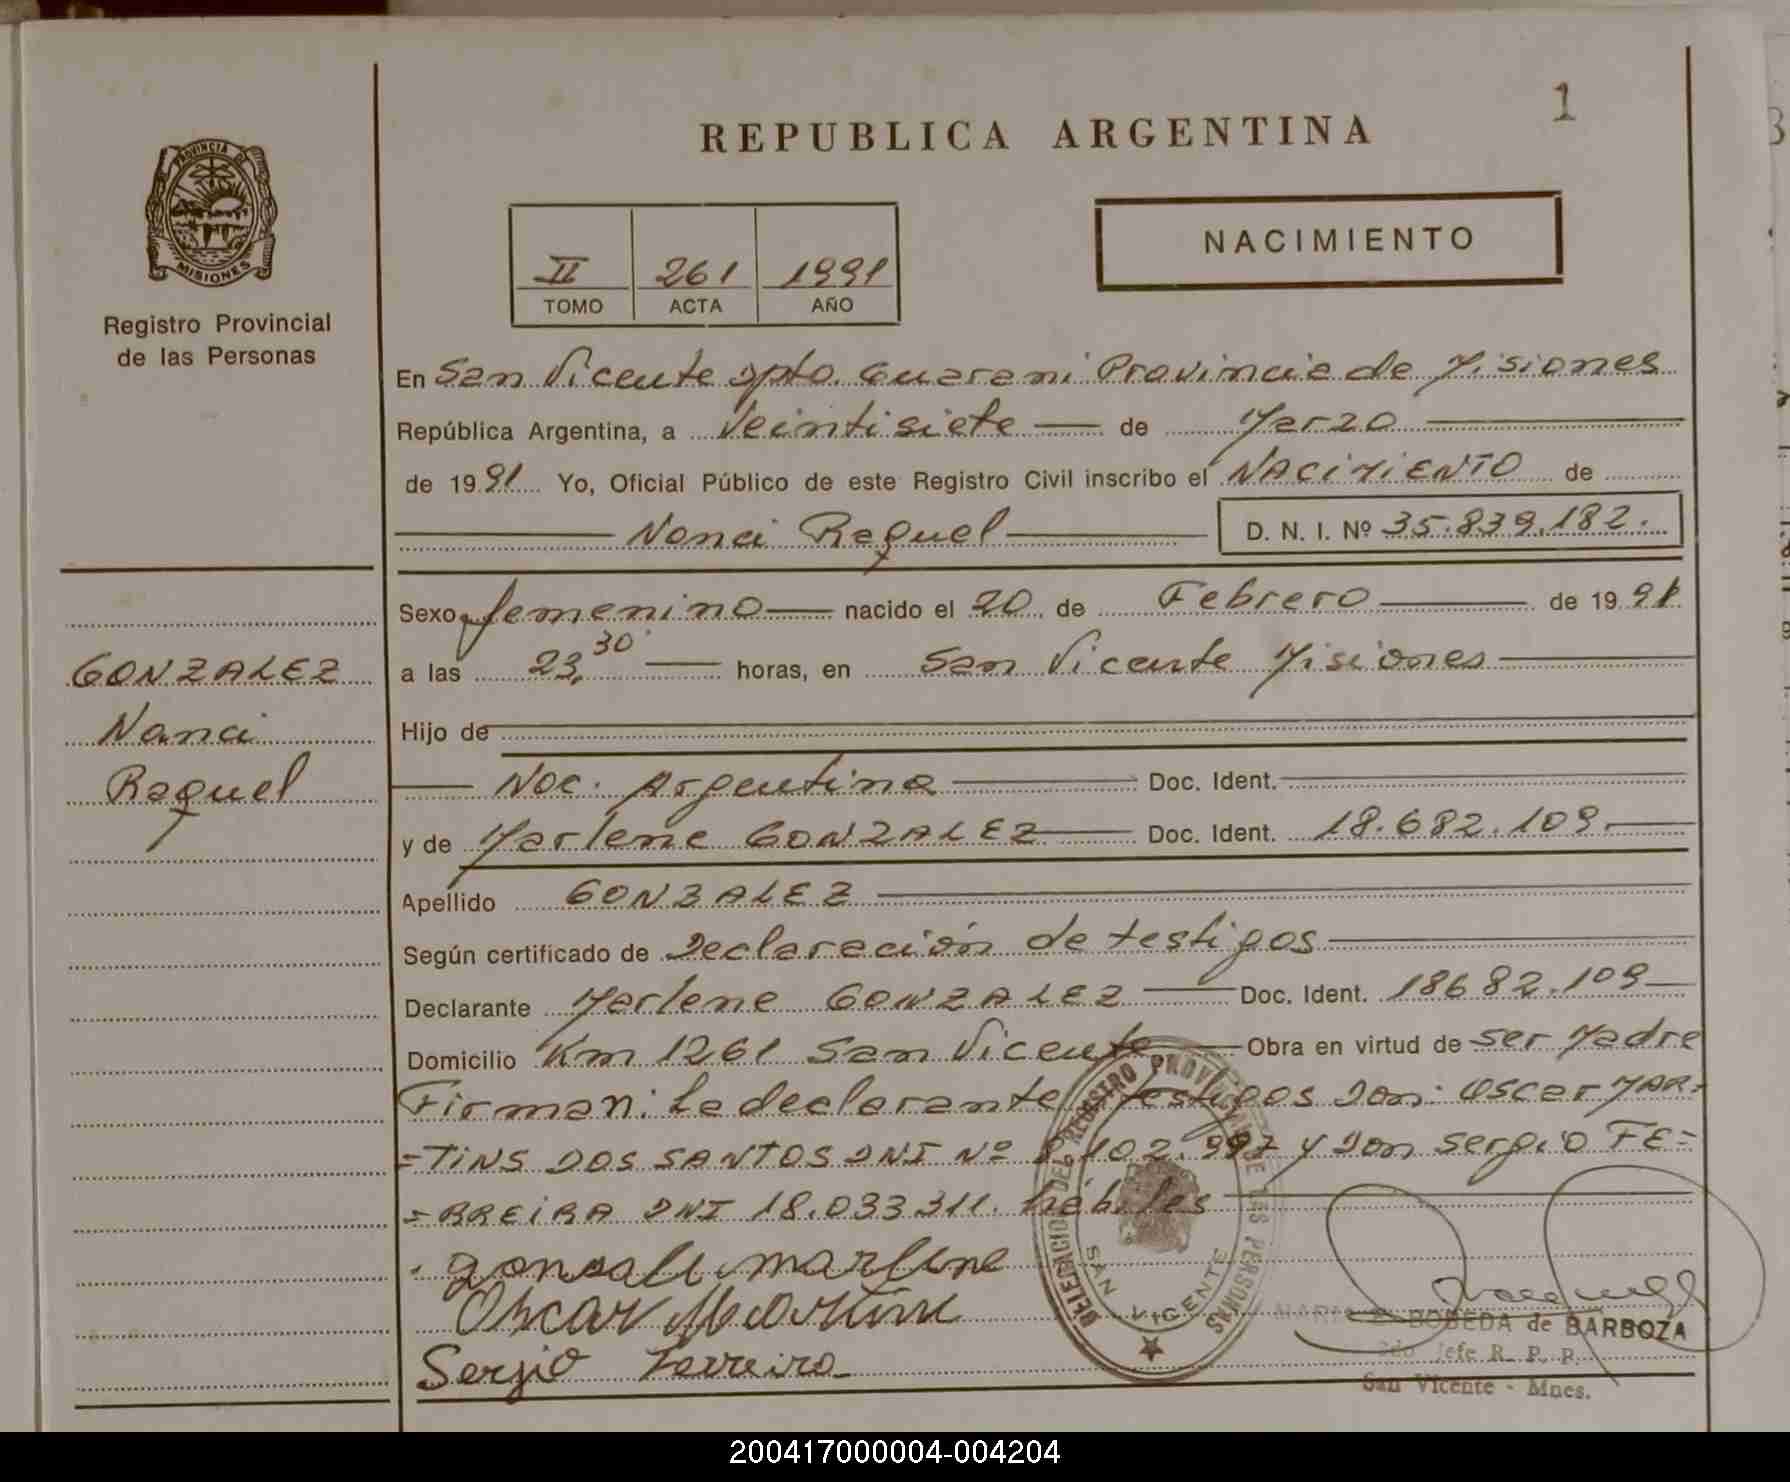 1
REPUBLICA ARGENTINA
PROVINCIA DE
MISIONES
Registro Provincial
de las Personas
II 261 1991
TOMO ACTA AÑO
NACIMIENTO
En San Vicente Dpto. Guarani Provincia de Misiones
República Argentina, a Veintisiete de Marzo
de 1991 Yo, Oficial Público de este Registro Civil inscribo el NACIMIENTO de
Nanci Raquel D. N. I. Nº 35.839.182.
Sexo femenino nacido el 20 de Febrero de 1991
GONZALEZ
Nanci
Raquel
a las 23,30 horas, en San Vicente Misiones
Hijo de
Nac. Argentina Doc. Ident.
y de Marlene GONZALEZ Doc. Ident. 18.682.109.
Apellido GONZALEZ
Según certificado de Declaración de testigos
Declarante Marlene GONZALEZ Doc. Ident. 18682.109
Domicilio Km 1261 San Vicente Obra en virtud de ser Madre
Firman: La declarante, testigos Don: Oscar MAR=
=TINS DOS SANTOS DNI Nº 8.102.997 y Don Sergio FE=
=RREIRA DNI 18.033.311. hábiles
gonsale marlene
Oscar Martins
Sergio Ferreira
DELEGACION DEL REGISTRO PROVINCIAL DE LAS PERSONAS
SAN VICENTE
BOBEDA de BARBOZA
2do Jefe R. P. P.
San Vicente - Mnes.
200417000004-004204